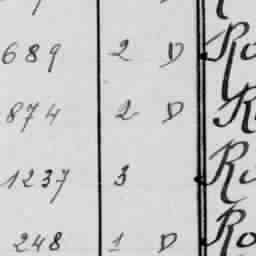 689 2 D Ro
874 2 D R
1237 3 Ru
248 1 D Ro